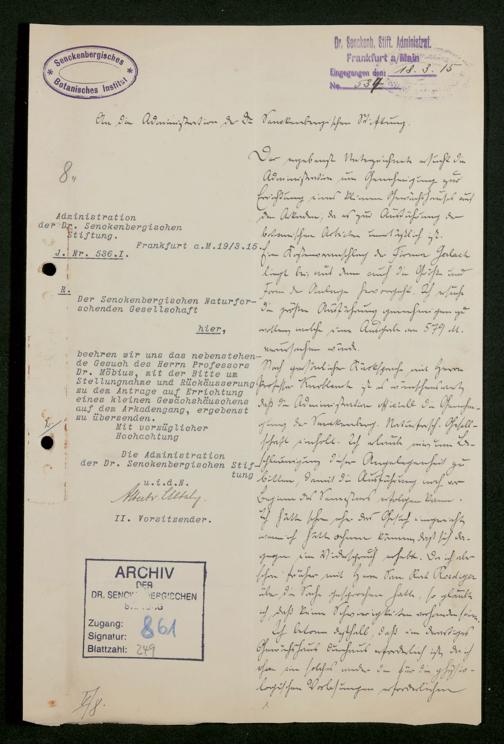 Senckenbergisches
Botanisches Institut
Dr. Senckenb. Stift. Administrat.
Frankfurt a/Main
Eingegangen den: 18. 3. 15
No. 534
An die Administration der Dr. Senckenbergischen Stiftung.
8.
Administration
der Dr. Senckenbergischen
Stiftung.
Frankfurt a.M.19/3.15.
J. Nr. 536.I.
R.
Der Senckenbergischen Naturfor-
schenden Gesellschaft
hier,
beehren wir uns das nebenstehen-
de Gesuch des Herrn Professors
Dr. Möbius, mit der Bitte um
Stellungnahme und Rückäusserung
zu dem Antrage auf Errichtung
eines kleinen Gewächshäuschens
auf dem Arkadengang, ergebenst
zu übersenden.
Mit vorzüglicher
Hochachtung
Die Administration
der Dr. Senckenbergischen Stif-
tung
u.i.d.N.
II. Vorsitzender.
Der ergebenst Unterzeichnete ersucht die
Administration um Genehmigung zur
Errichtung eines kleinen Gewächshauses auf
den Arkaden, da es zur Ausführung der
botanischen Arbeiten unerläßlich ist.
Ein Kostenvoranschlag der Firma
liegt bei, aus dem auch die Größe und
Form der Anlage hervorgeht. Ich ersuche
die Ausführung genehmigen zu
wollen, welche eine Ausgabe von 579 M.
verursachen würde.
Nach Rücksprache mit Herrn
Professor Knoblauch ist es wünschenswert,
daß die Administration offiziell die Genehmi-
gung der Senckenberg. Naturforsch. Gesell-
schaft einholt. Ich erlaube mir um Be-
schleunigung dieser Angelegenheit zu
bitten, damit die Ausführung noch vor
Beginn des Semesters erfolgen kann.
Ich hätte schon eher das Gesuch eingereicht
wenn ich hätte ahnen können, daß sich da-
gegen ein Widerspruch erhebt. Da ich aber
schon früher mit Herrn San. Rat Roediger
über die Sache gesprochen hatte, so glaubte
ich, daß keine Schwierigkeiten vorhanden seien.
Ich betone deshalb, daß ein derartiges
Gewächshaus durchaus erforderlich ist, da ich
ohne ein solches weder die für die physio-
logischen Vorlesungen erforderlichen
ARCHIV
DER
DR. SENCKENBERGISCHEN
STIFTUNG
Zugang:
Signatur: 861
Blattzahl: 249